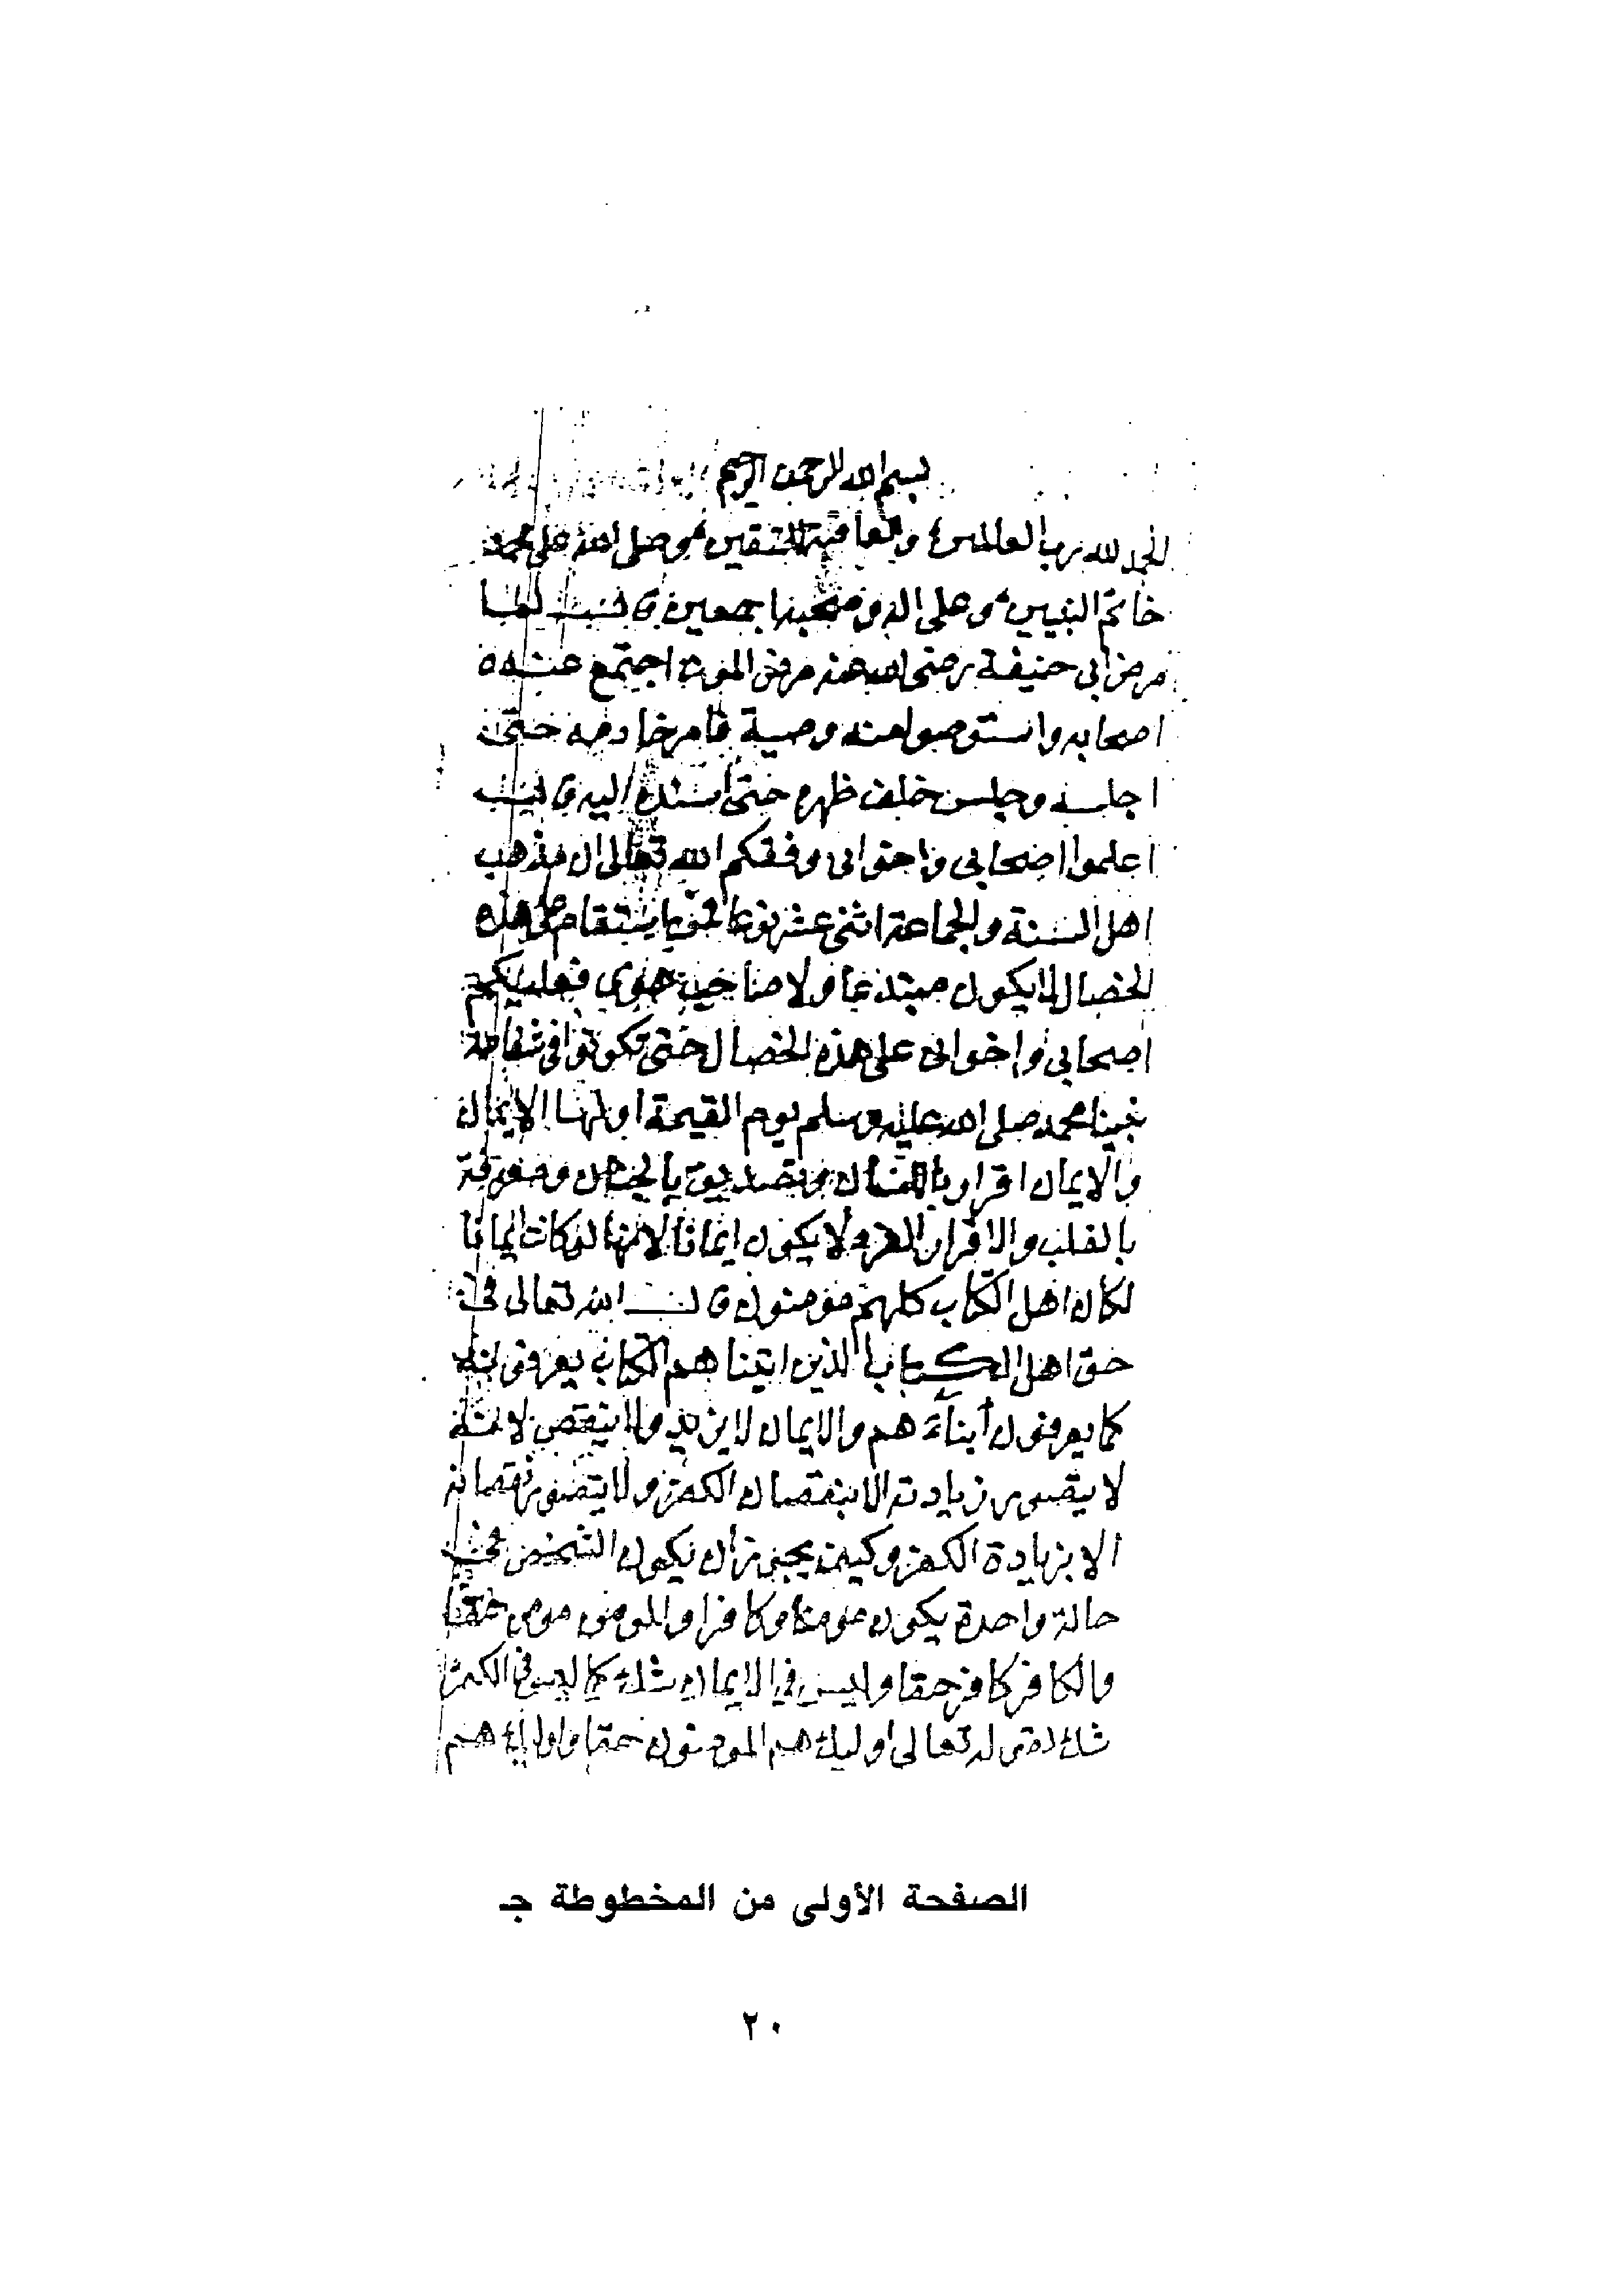 بسم الله الرحمن الرحيم
الحمد لله رب العالمين والعاقبة للمتقين وصلى الله على محمد
خاتم النبيين وعلى اله وصحبه اجمعين قال لما
مرض ابى حنيفة رضى الله عنه مرض الموت اجتمع عنده
اصحابه واستوصوا منه وصية فامر خادمه حتى
اجلسه وجلس خلف ظهره حتى استند اليه قال
اعلموا اصحابى واخوانى وفقكم الله تعالى ان مذهب
اهل السنة والجماعة اثنى عشر نوعا فمن استقام على هذه
الخصال لا يكون مبتدعا ولا صاحب هوى فعليكم
اصحابى واخوانى على هذه الخصال حتى تكونوا فى شفاعة
نبينا محمد صلى الله عليه وسلم يوم القيمة اولها الايمان
والايمان اقرار باللسان وتصديق بالجنان ومعرفة
بالقلب والاقرار وحده لا يكون ايمانا لانها لو كانت ايمانا
لكان اهل الكتاب كلهم مؤمنون قال الله تعالى فى
حق اهل الكتاب الذين اتينا هم الكتاب يعرفونه
كما يعرفون أبناءَ هم والايمان لا يزيد ولا ينقص لانه
لا يتصور زيادته الا بنقصان الكفر ولا يتصور نقصانه
الا بزيادة الكفر وكيف يجوز أن يكون الشخص فى
حالة واحدة يكون مومنا وكافرا والمومن مومن حقا
والكافر كافر حقا وليس فى الايمان شك كما ليس فى الكفر
شك لقوله تعالى اوليك هم المومنون حقا واوليك هم
الصفحة الأولى من المخطوطة جـ
٢٠